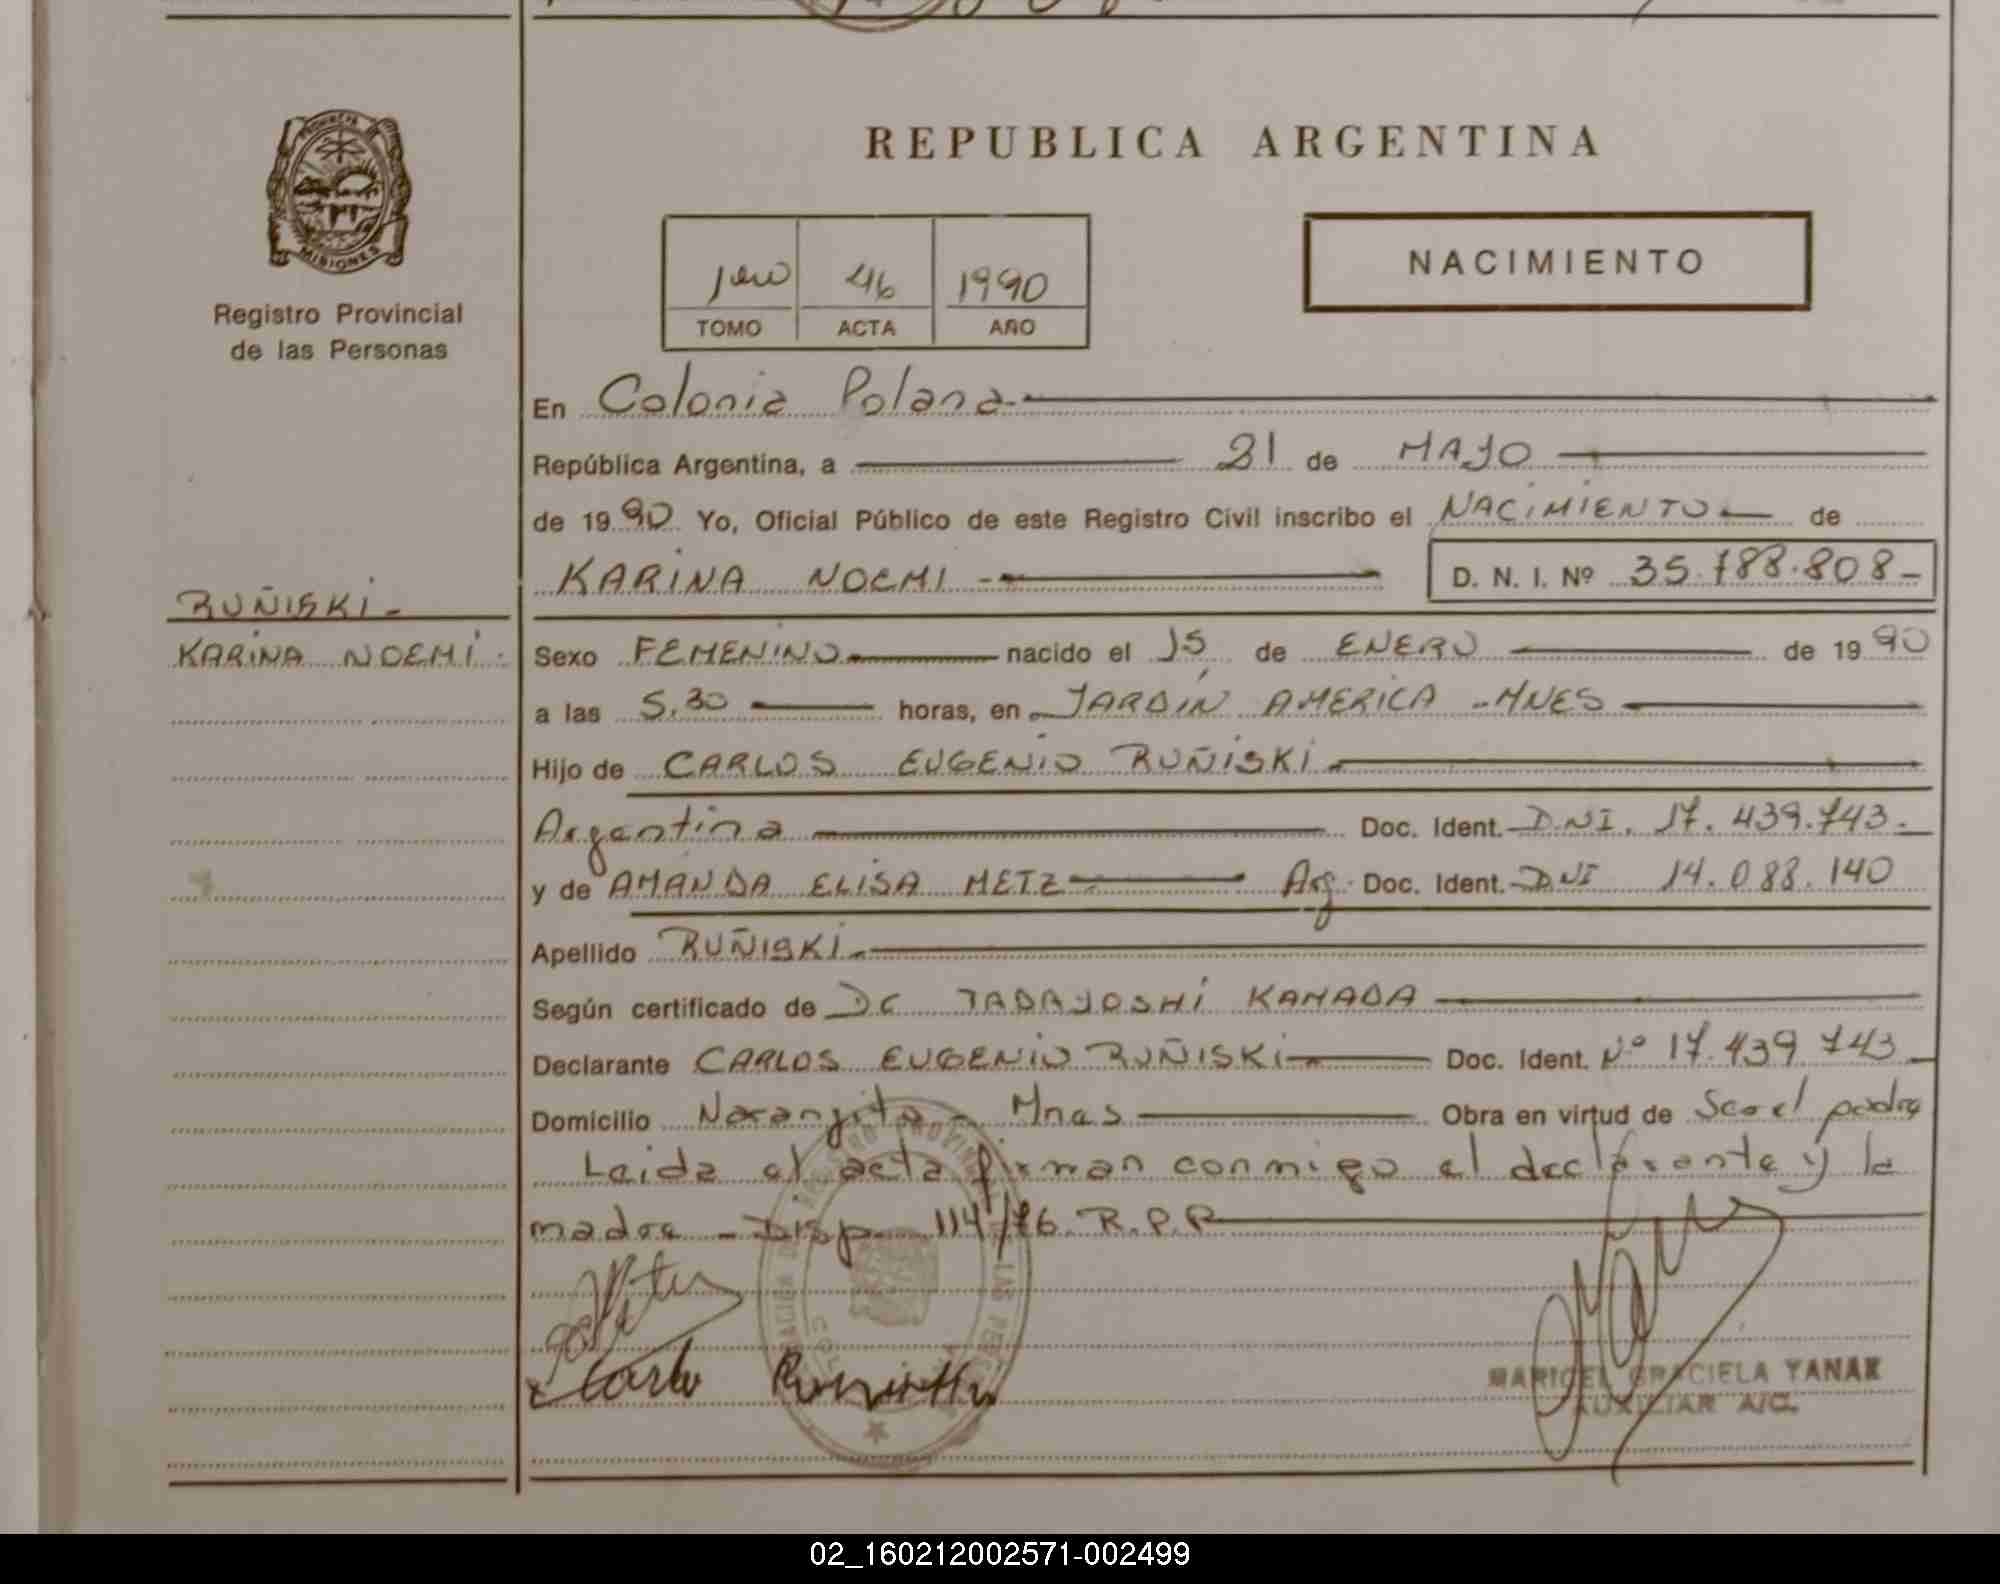 REPUBLICA ARGENTINA
PROVINCIA DE MISIONES
Registro Provincial
de las Personas
46 1990
TOMO ACTA AÑO
NACIMIENTO
En Colonia Polana
República Argentina, a 31 de MAYO
de 1990 Yo, Oficial Público de este Registro Civil inscribo el NACIMIENTO de
KARINA NOEMI D. N. I. Nº 35.788.808
RUÑISKI
KARINA NOEMI
Sexo FEMENINO nacido el 15 de ENERO de 1990
a las 5.30 horas, en JARDIN AMERICA - MNES
Hijo de CARLOS EUGENIO RUÑISKI
Argentina Doc. Ident. DNI. 17.439.743
y de AMANDA ELISA METZ Arg. Doc. Ident. DNI 14.088.140
Apellido RUÑISKI
Según certificado de DC TADAYOSHI KAMADA
Declarante CARLOS EUGENIO RUÑISKI Doc. Ident. Nº 17.439.743
Domicilio Naranjito - Mnes Obra en virtud de Ser el padre
Leida el acta firman conmigo el declarante y la
madre - Disp. 114/76 R.P.P
Carlo
MARICEL GRACIELA YANAK
AUXILIAR A/C.
02_160212002571-002499